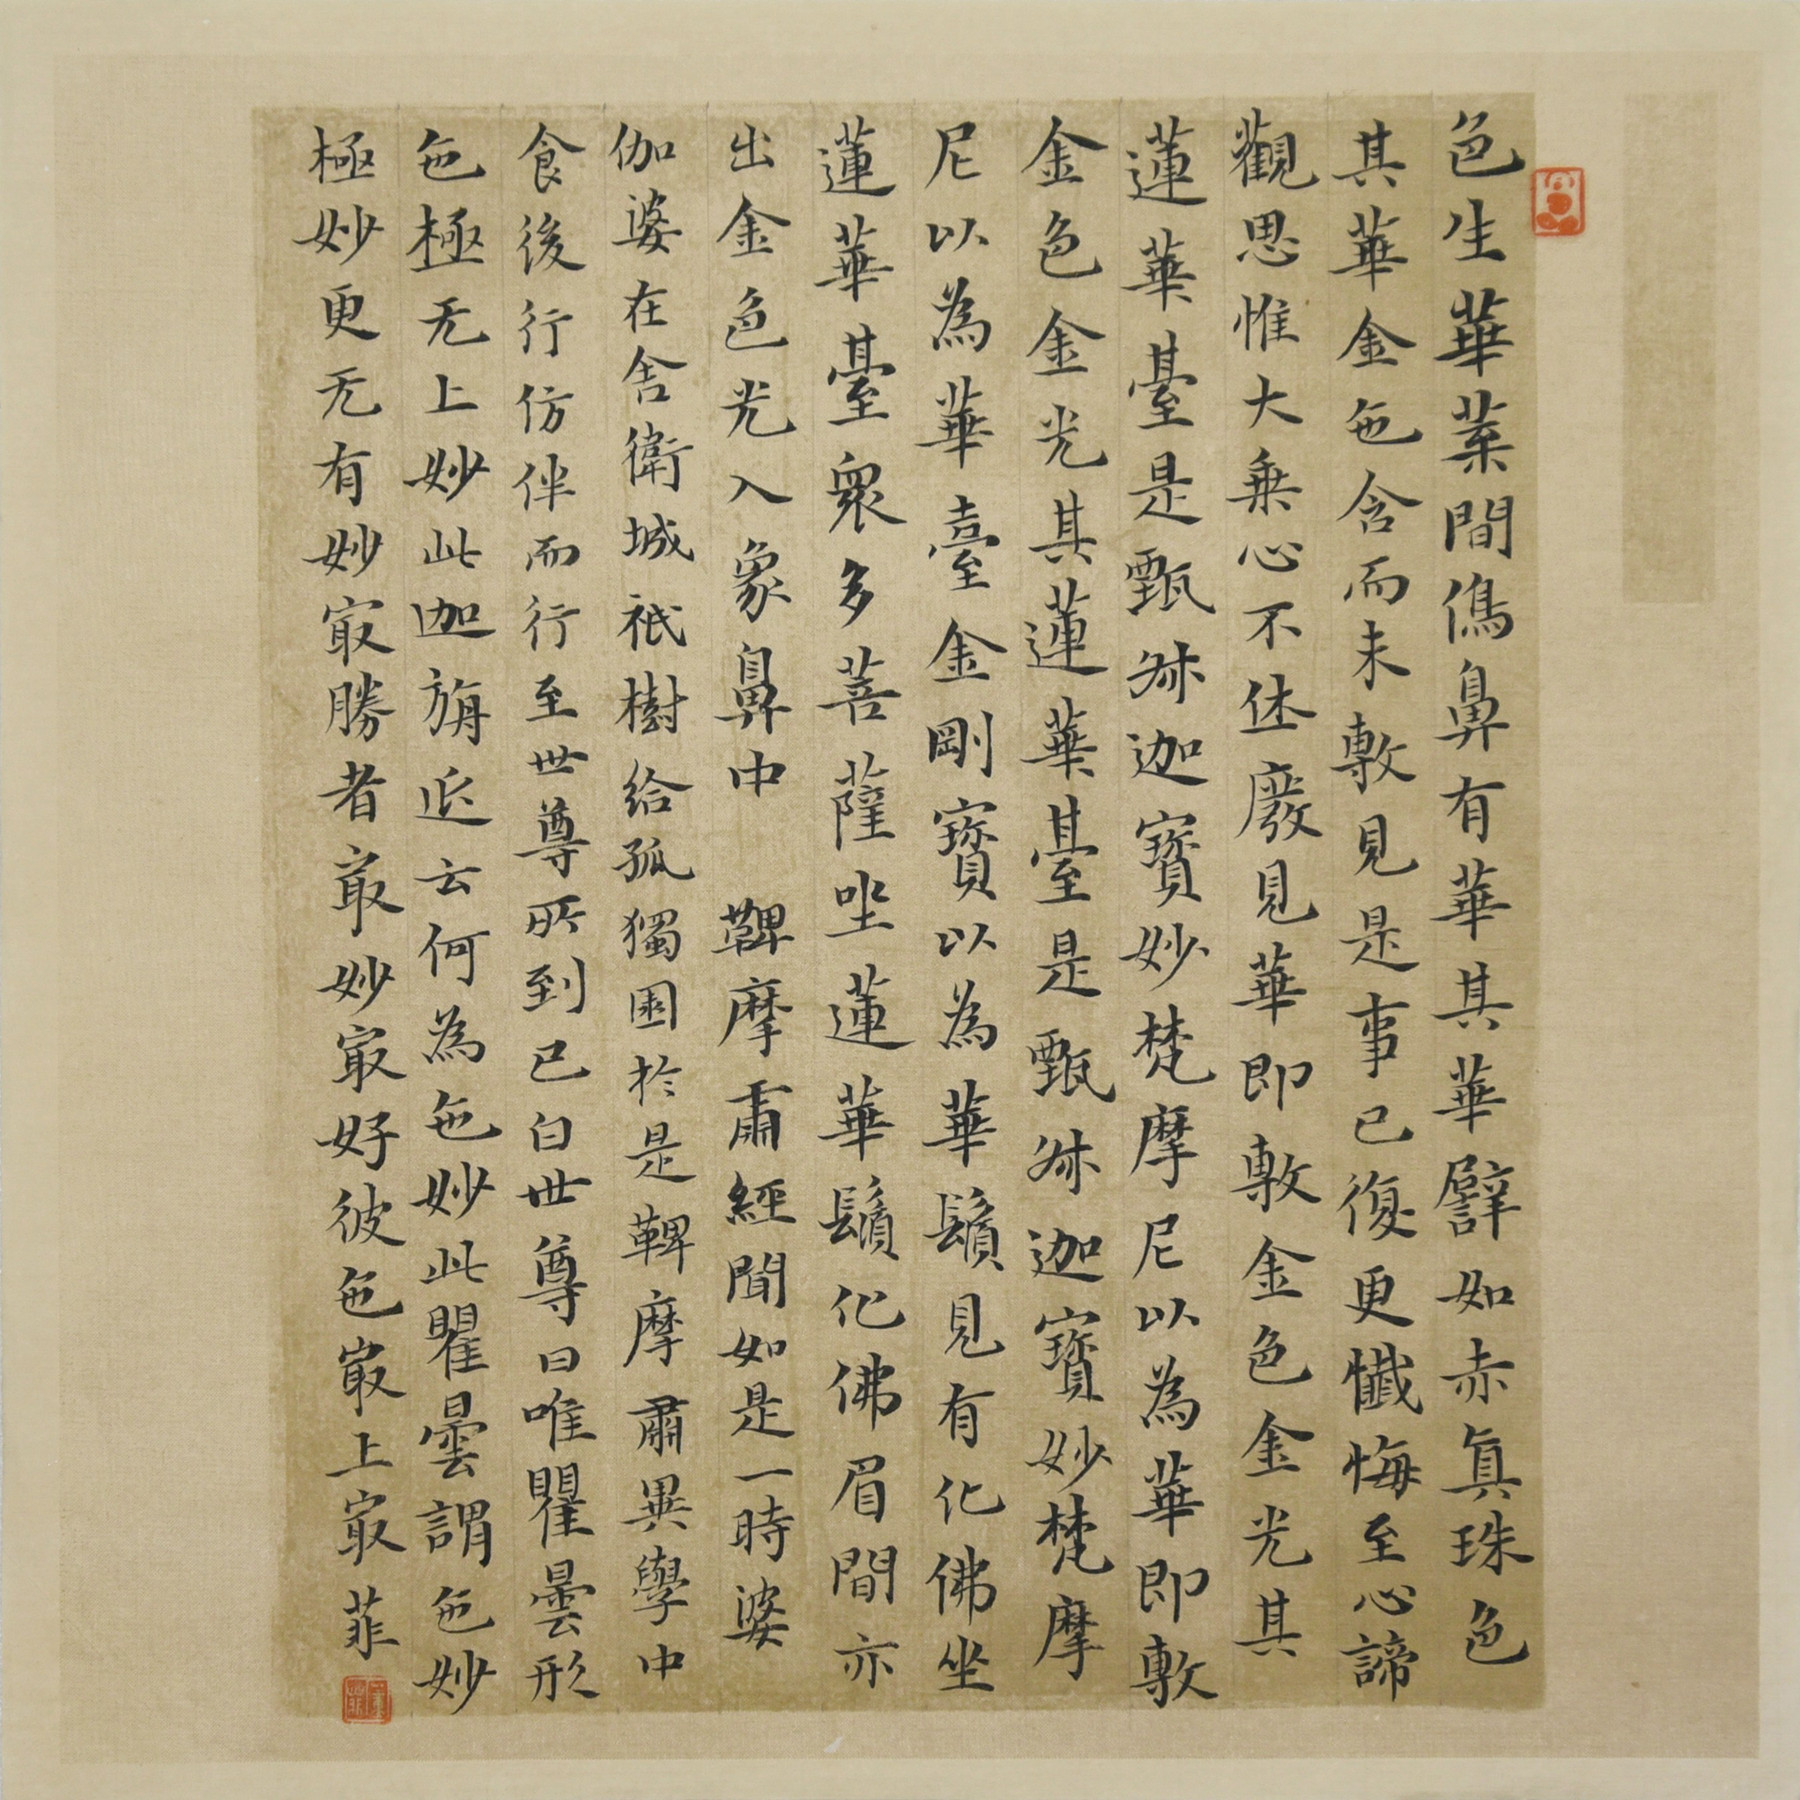 色生華葉間儁鼻有華其華譬如赤真珠色
其華金色含而未敷見是事已復更懺悔至心諦
觀思惟大乗心不休廢見華即敷金色金光其
蓮華臺是甄叔迦寶妙梵摩尼以為華即敷
金色金光其蓮華臺是甄叔迦寶妙梵摩
尼以為華臺金剛寶以為華鬚見有化佛坐
蓮華臺衆多菩薩坐蓮華鬚化佛眉間亦
出金色光入象鼻中 鞞摩肅經聞如是一時婆
伽婆在舍衛城祇樹給孤獨園於是鞞摩肅異學中
食後行仿佯而行至世尊所到已白世尊曰唯瞿曇形
色極无上妙此迦旃延云何為色妙此瞿曇謂色妙
極妙更无有妙冣勝者冣妙冣好彼色冣上冣 菲